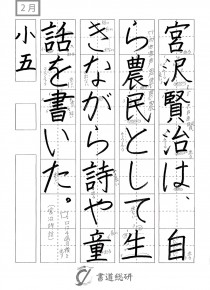 2月
宮沢賢治は、自
ら農民として生
きながら詩や童
話を書いた。
小五
書道総研